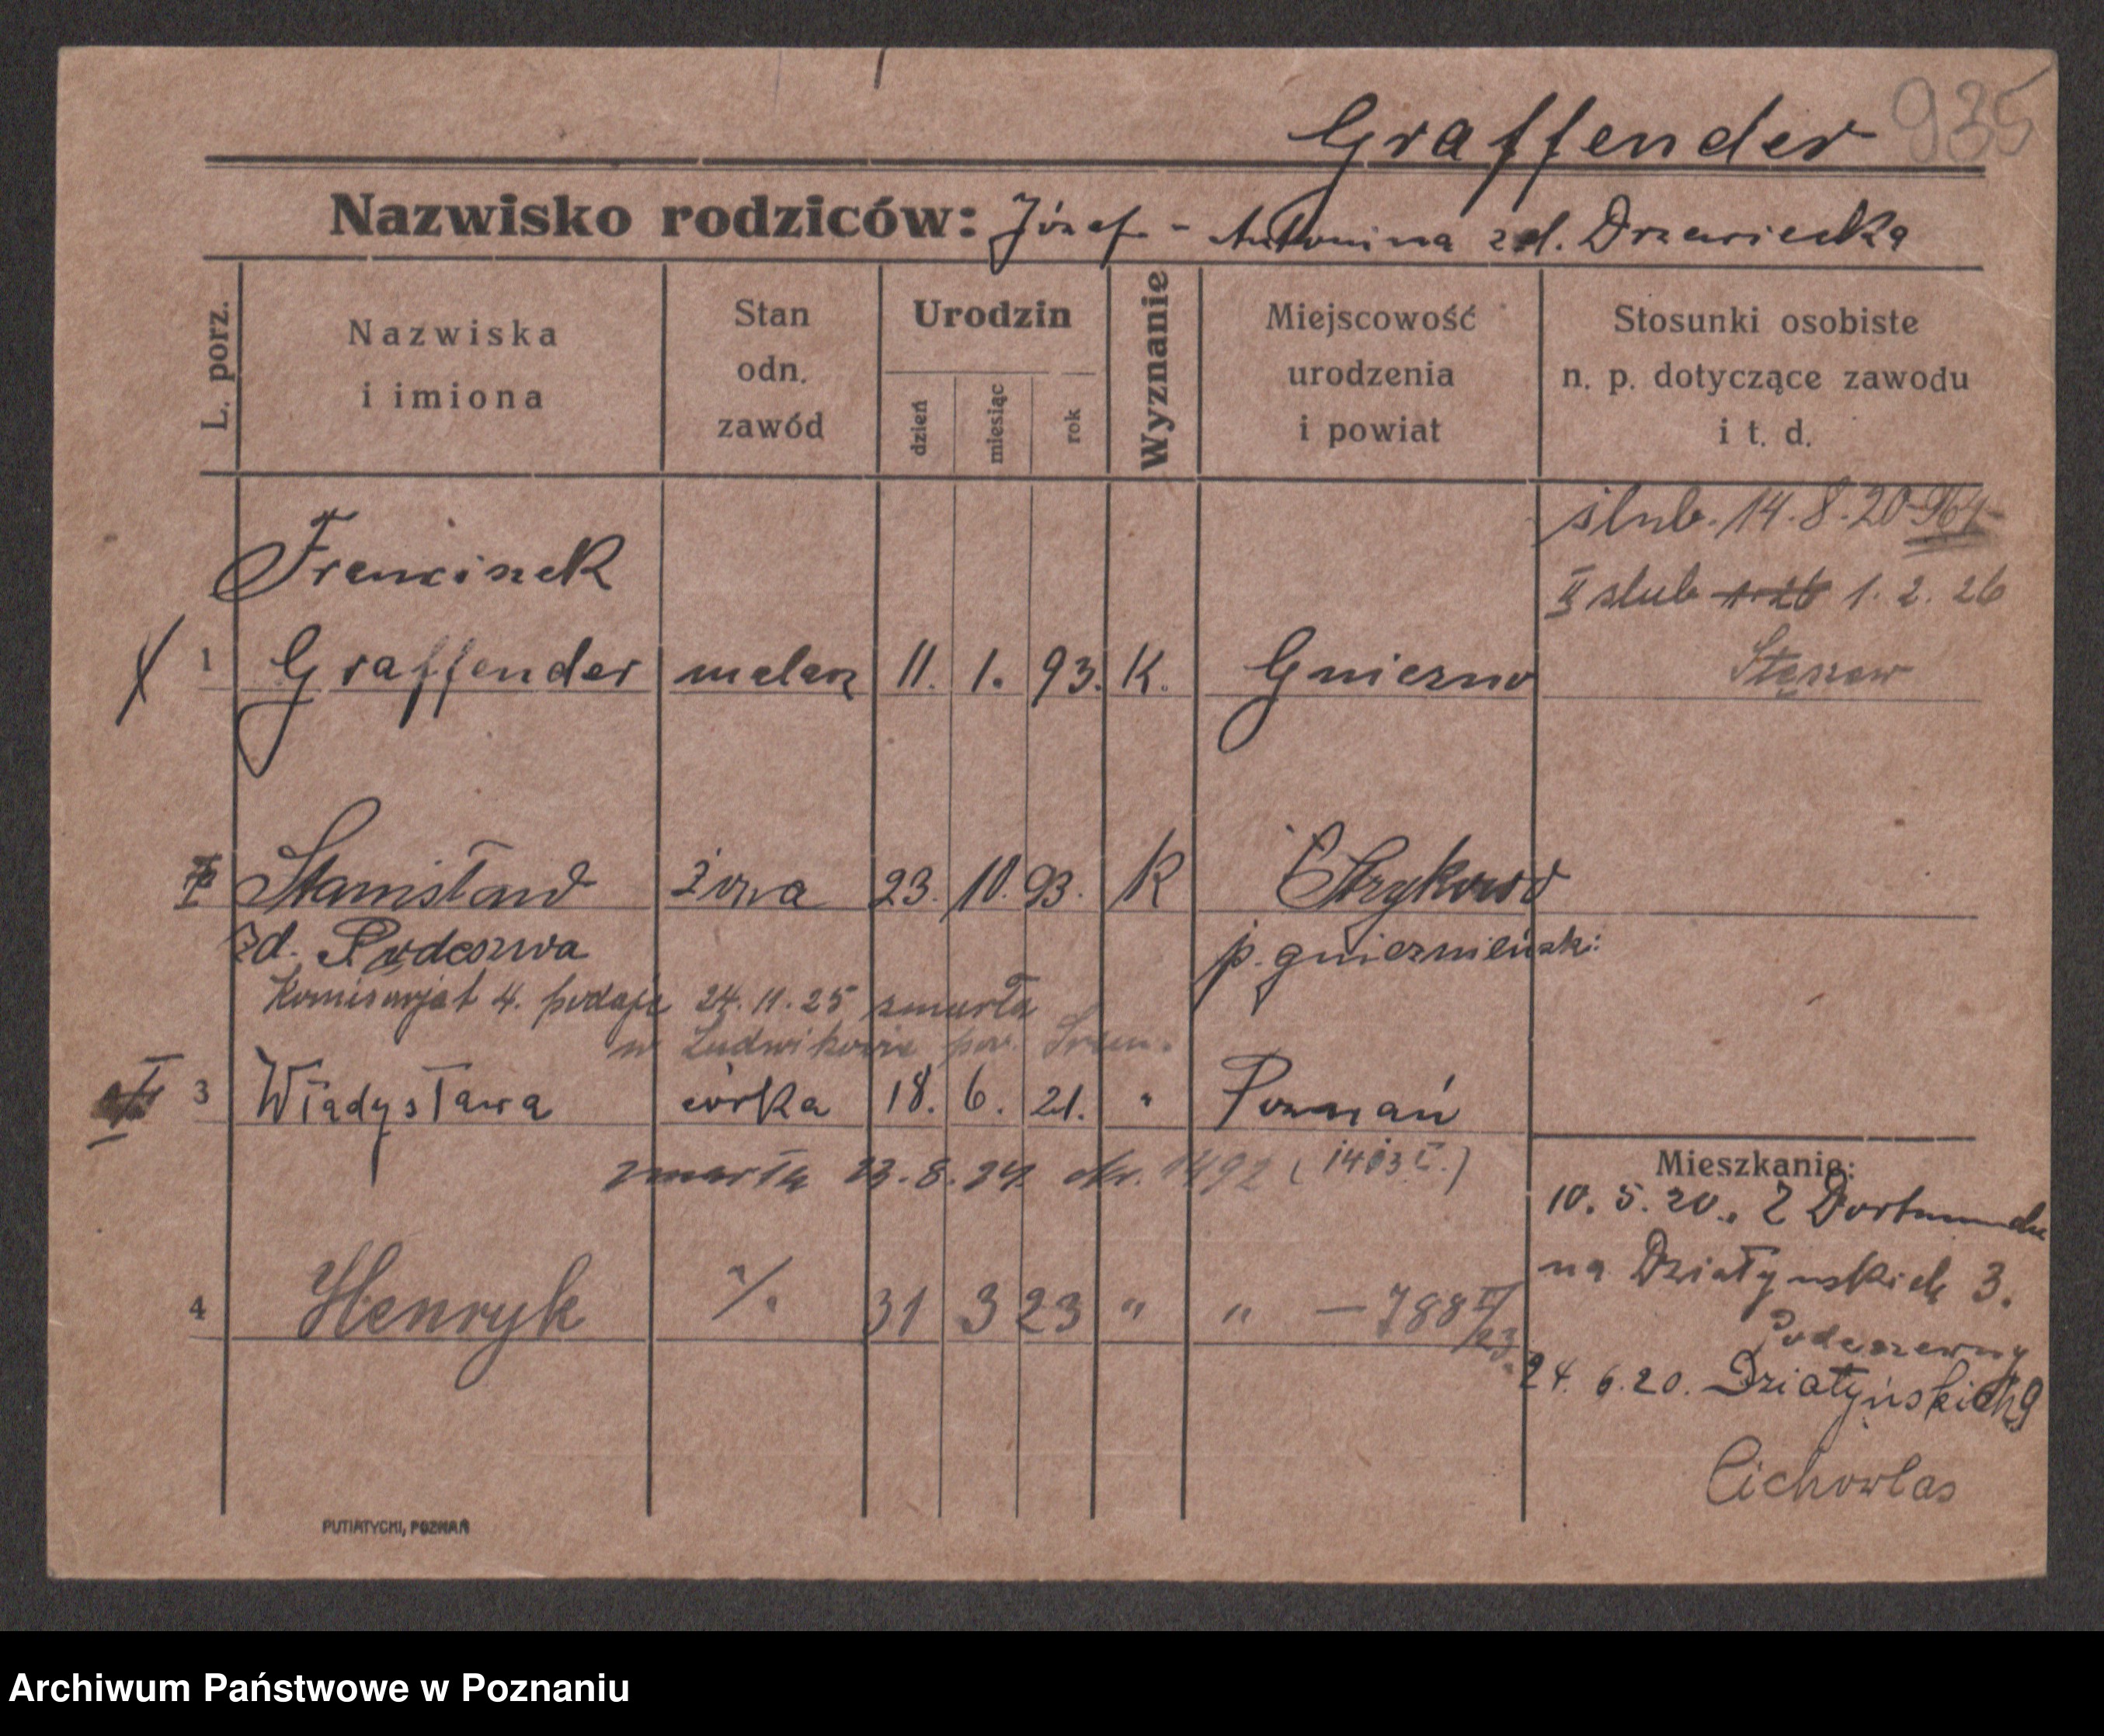 Graffender 935
Nazwisko rodziców: Józef - Antonina zd. Drzewiecka
L. porz.
Nazwiska
i imiona
Stan
odn.
zawód
Urodzin
dzień
miesiąc
rok
Wyznanie
Miejscowość
urodzenia
i powiat
Stosunki osobiste
n. p. dotyczące zawodu
i t. d.
ślub. 14.8.20 964
Franciszek
II ślub 1.2.26
1 Graffender malarz 11. 1. 93. K. Gniezno
Stęszew
Stanisława żona 23. 10. 93. K
zd. Podeszwa p. gnieźnieński
Komisarjat 4. podaje 24.11.25 zmarła
w Ludwikowie pow. Śrem.
3 Władysława córka 18. 6. 21. " Poznań
zmarła 23.8.24 1492 (1403 I.)
Mieszkanie:
10.5.20. Z Dortmundu
na Działyńskich 3.
4 Henryk 31 3 23 " " - 788 II/23.
24.6.20. Działyńskich 9
Cichowlas
PUTIATYCKI, POZNAŃ
Archiwum Państwowe w Poznaniu